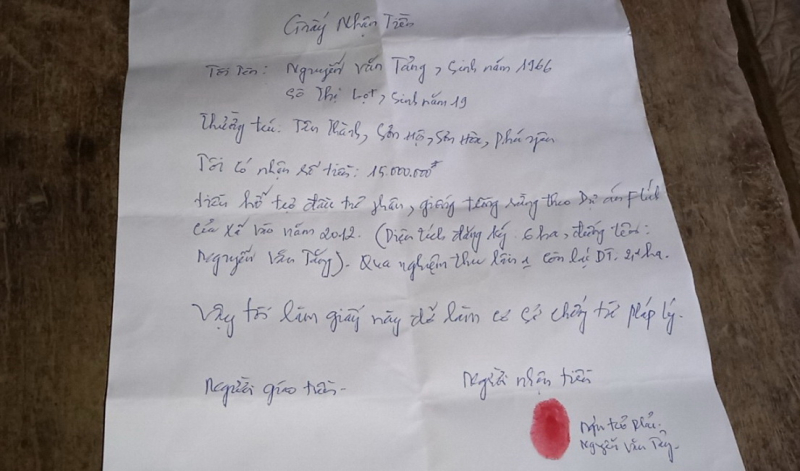 Giấy Nhận Tiền
Tôi tên: Nguyễn Văn Tảng, sinh năm 1966
Sô Thị Lọt, sinh năm 19
Thường trú: Tân Thành, Sơn Hội, Sơn Hòa, Phú Yên
Tôi có nhận số tiền: 15.000.000đ
tiền hỗ trợ đầu tư phân, giống trồng rừng theo Dự án
của xã vào năm 2012. (Diện tích đăng ký 6 ha, đứng tên:
Nguyễn Văn Tảng). Qua nghiệm thu lần 1 còn lại DT: ha.
Vậy tôi làm giấy này để làm cơ sở chứng từ pháp lý.
Người giao tiền
Người nhận tiền
Nguyễn Văn